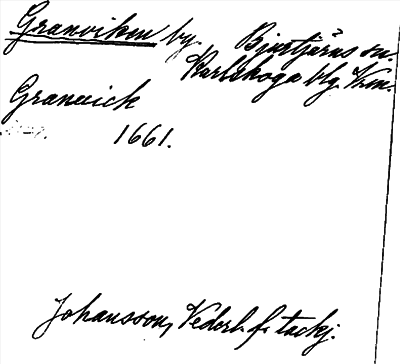 Granviken by. Bjurtjärns sn.
Karlskoga blg. Vrm.
Granuick
1661.
Johansson, Vederl. f. tackj.